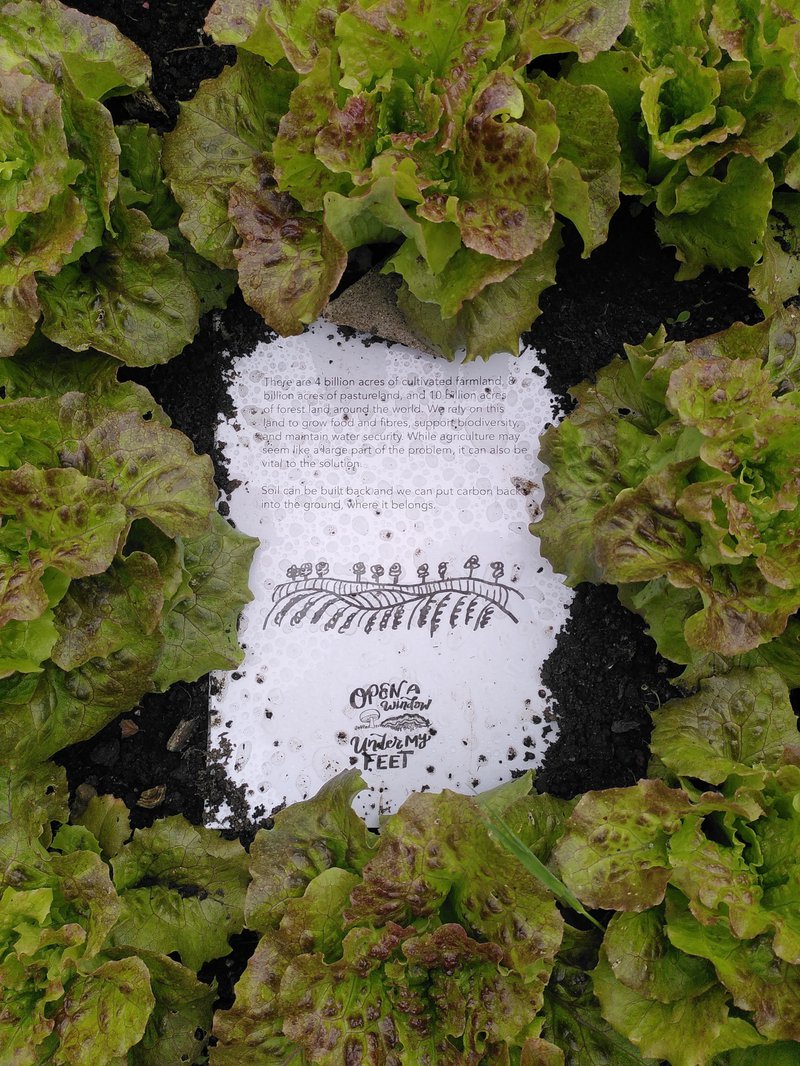 There are 4 billion acres of cultivated farmland, 8
billion acres of pastureland, and 10 billion acres
of forest land around the world. We rely on this
land to grow food and fibres, support biodiversity,
and maintain water security. While agriculture may
seem like a large part of the problem, it can also be
vital to the solution.
Soil can be built back and we can put carbon back
into the ground, where it belongs.
OPEN A
Window
Under My
FEET